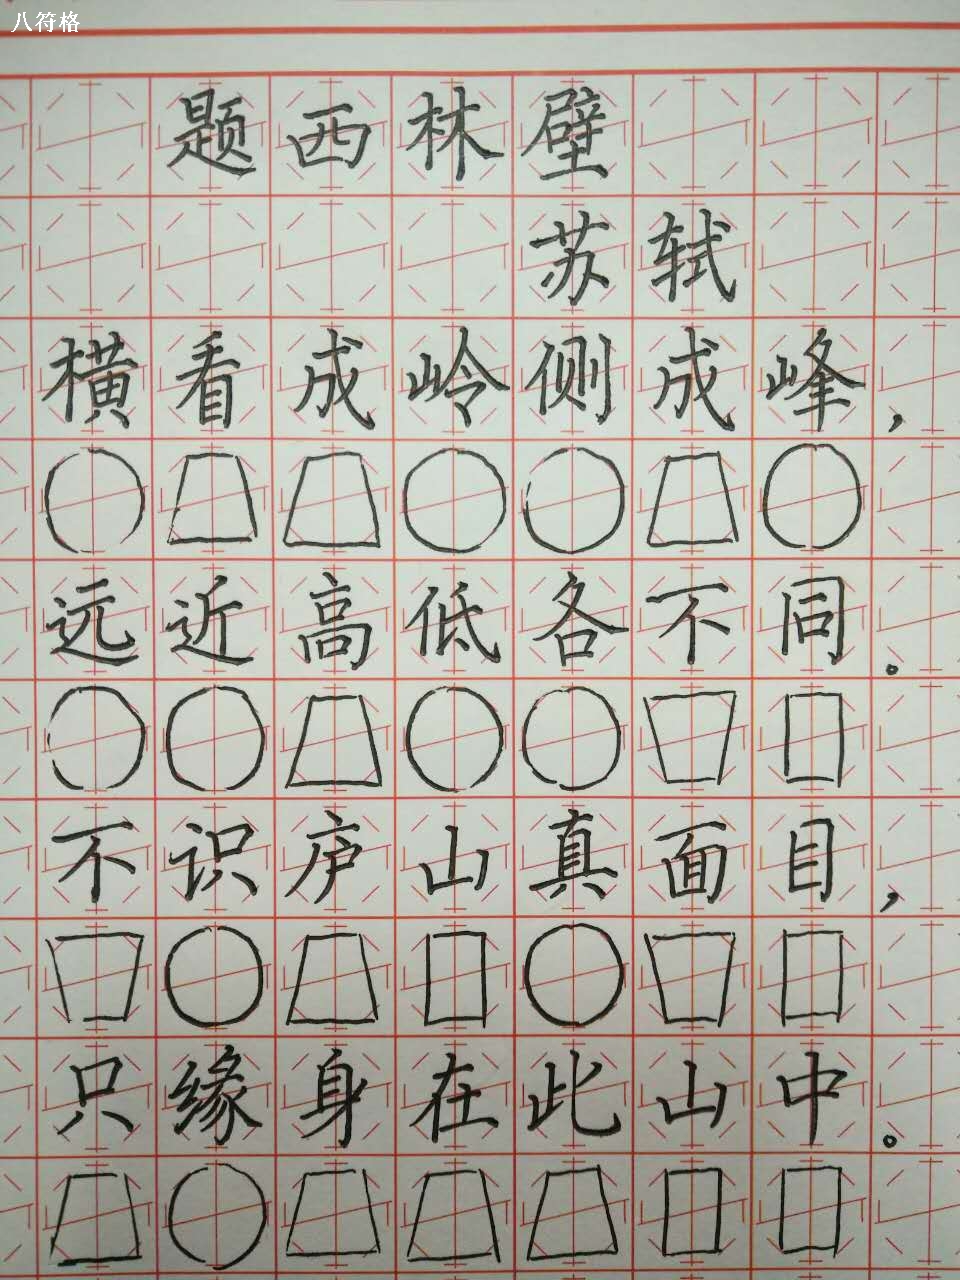 八符格
题西林壁
苏轼
横看成岭侧成峰，
远近高低各不同。
不识庐山真面目，
只缘身在此山中。